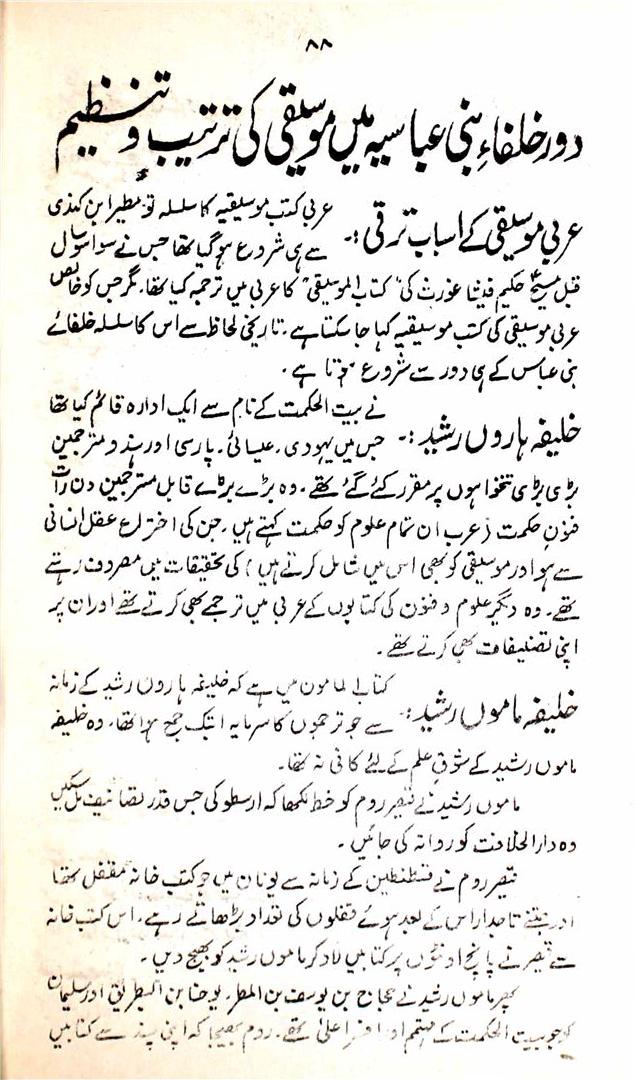 ۸۸
دور خلفاءِ بنی عباسیہ میں موسیقی کی ترتیب و تنظیم
عربی موسیقی کے اسباب ترقی :۔ عربی کتب موسیقیہ کا سلسلہ تو مطیر ابن کندی
سے ہی شروع ہو گیا تھا جس نے سوا سو سال
قبل مسیح حکیم فیثا غورث کی "کتاب الموسیقی" کا عربی میں ترجمہ کیا تھا۔ مگر جس کو خالص
عربی موسیقی کی کتب موسیقیہ کہا جا سکتا ہے۔ تاریخی لحاظ سے اس کا سلسلہ خلفائے
بنی عباس کے ہی دور سے شروع ہوتا ہے۔
خلیفہ ہاروں رشید :۔ نے بیت الحکمت کے نام سے ایک ادارہ قائم کیا تھا
جس میں یہودی۔ عیسائی۔ پارسی اور ہندو مترجمین
بڑی بڑی تنخواہوں پر مقرر کئے گئے تھے۔ وہ بڑے بڑے قابل مترجمین دن رات
فنون حکمت (عرب ان تمام علوم کو حکمت کہتے ہیں۔ جن کی اختراع عقل انسانی
سے ہو اور موسیقی کو بھی اس میں شامل کرتے ہیں) کی تحقیقات میں مصروف رہتے
تھے۔ وہ دیگر علوم و فنون کی کتابوں کے عربی میں ترجمے بھی کرتے تھے اور ان پر
اپنی تصنیفات بھی کرتے تھے۔
خلیفہ ماموں رشید :۔ کتاب المامون میں ہے کہ خلیفہ ہاروں رشید کے زمانہ
سے جو ترجموں کا سرمایہ ابتک جمع ہوا تھا۔ وہ خلیفہ
ماموں رشید کے شوقِ علم کے لیئے کافی نہ تھا۔
ماموں رشید نے قیصر روم کو خط لکھا کہ ارسطو کی جس قدر تصانیف مل سکیں
وہ دار الخلافت کو روانہ کی جائیں۔
قیصر روم نے قسطنطین کے زمانہ سے یونان میں جو کتب خانہ مقفل تھا
اور جتنے تاجدار اس کے بعد ہوئے قفلوں کی تعداد بڑھاتے رہے۔ اس کتب خانہ
سے قیصر نے پانچ اونٹوں پر کتابیں لاد کر ماموں رشید کو بھیج دیں۔
پھر ماموں رشید نے حجاج بن یوسف بن المطر۔ یوحنا بن البطریق اور سلیمان
کو جو بیت الحکمت کے مہتمم اور افسر اعلیٰ تھے۔ روم بھیجا کہ اپنی پسند سے کتابیں